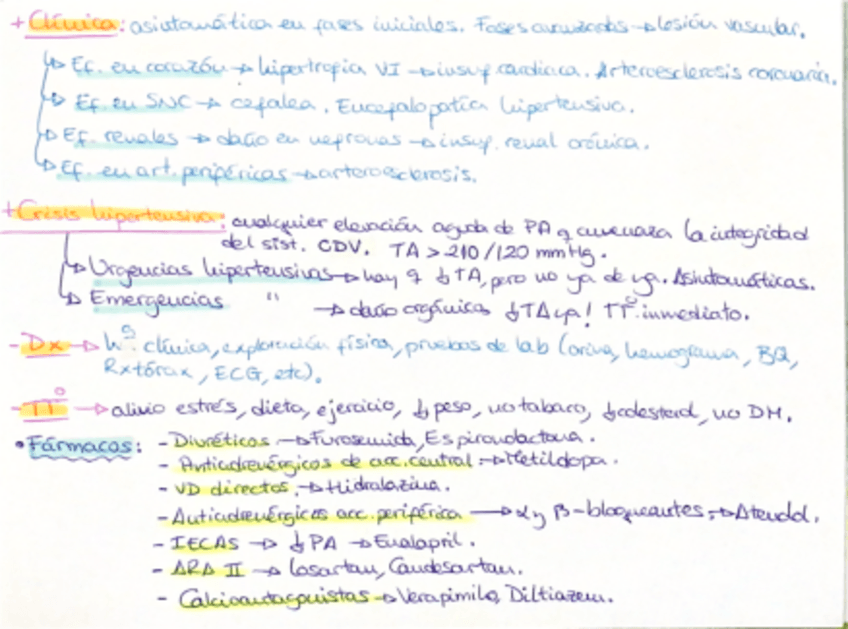 + Clínica: asintomática en fases iniciales. Fases avanzadas → lesión vascular.
↳ Ef. en corazón → hipertrofia VI → insuf. cardiaca. Arteroesclerosis coronaria.
↳ Ef. en SNC → cefalea. Encefalopatía hipertensiva.
↳ Ef. renales → daño en nefronas → insuf. renal crónica.
↳ Ef. en art. periféricas → arteroesclerosis.
+ Crisis hipertensiva: cualquier elevación aguda de PA q amenaza la integridad
del sist. CDV. TA > 210/120 mmHg.
↳ Urgencias hipertensivas → hay q ↓TA, pero no ya de ya. Asintomáticas.
↳ Emergencias " → daño orgánico ↓TA ya! TTº inmediato.
- Dx → hª clínica, exploración física, pruebas de lab (orina, hemograma, BQ,
Rx tórax, ECG, etc).
- TTº → alivio estrés, dieta, ejercicio, ↓ peso, no tabaco, ↓colesterol, no DM.
• Fármacos: - Diuréticos → Furosemida, Espironolactona.
- Antiadrenérgicos de acc. central → Metildopa.
- VD directos. → Hidralazina.
- Antiadrenérgicos acc. periférica → α y β-bloqueantes → Atenolol.
- IECAS → ↓ PA → Enalapril.
- ARA II → Losartan, Candesartan.
- Calcioantagonistas → Verapimilo, Diltiazem.